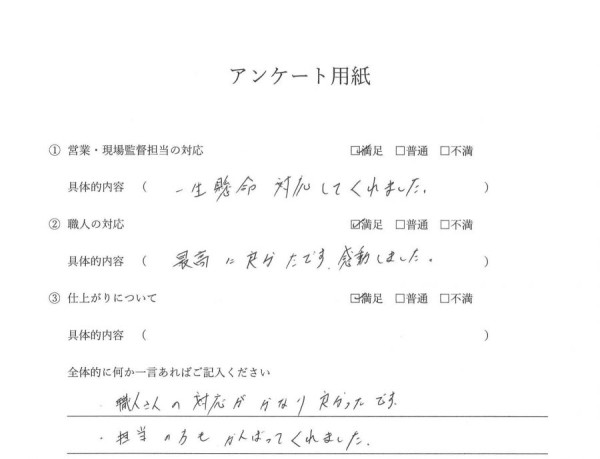 アンケート用紙
① 営業・現場監督担当の対応 ☑満足 □普通 □不満
具体的内容 ( 一生懸命 対応してくれました。 )
② 職人の対応 ☑満足 □普通 □不満
具体的内容 ( 最高に良かたです、感動しました。 )
③ 仕上がりについて ☑満足 □普通 □不満
具体的内容 ( )
全体的に何か一言あればご記入ください
・職人さんの対応がかなり良かったです。
・担当の方もがんばってくれました。